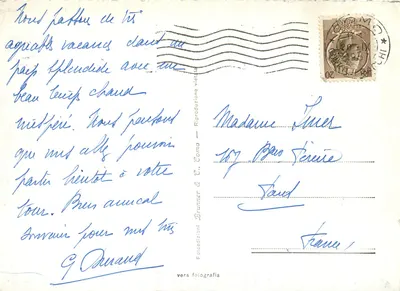 Nous passons de très
agréables vacances dans un
pays splendide avec un
beau temps chaud
inespéré. Nous pensons
que vous allez pouvoir
partir bientôt à votre
tour. Bien amical
souvenir pour vous tous
G Durand
Madame
107 Bara
Paris
France
vera fotografia